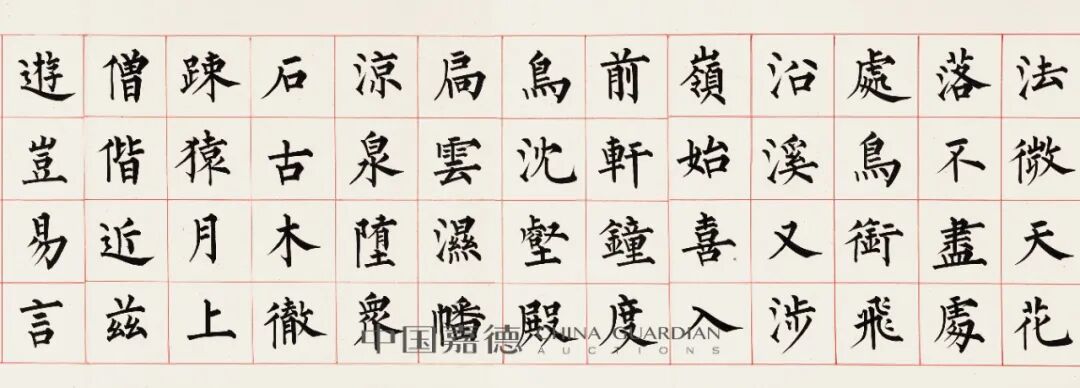 法微天花
落不盡處
處鳥銜飛
沿溪又涉
嶺始喜入
前軒鐘度
鳥沈壑殿
扃雲濕幡
涼泉墮衆
石古木徹
踈猿月上
僧偕近茲
遊豈易言
中国嘉德 CHINA GUARDIAN
AUCTIONS